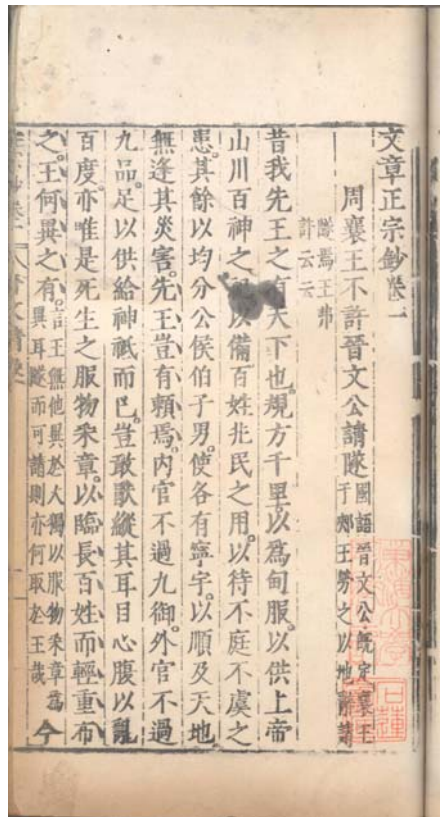 文章正宗鈔卷一
周襄王不許晉文公請隧
國語晉文公既定襄王
于郟王勞之以地辭請
隧焉王弗
許云云
昔我先王之有天下也。規方千里。以爲甸服。以供上帝
山川百神之以備百姓兆民之用。以待不庭不虞之
患。其餘以均分公侯伯子男。使各有寧宇。以順及天地
無逢其災害。先王豈有賴焉。内官不過九御。外官不過
九品。足以供給神祇而已。豈敢厭縱其耳目心腹以亂
百度。亦唯是死生之服物采章。以臨長百姓而輕重布
之。王何異之有。
言王無他異於人獨以服物采章爲
異耳隧而可請則亦何取於王哉
今